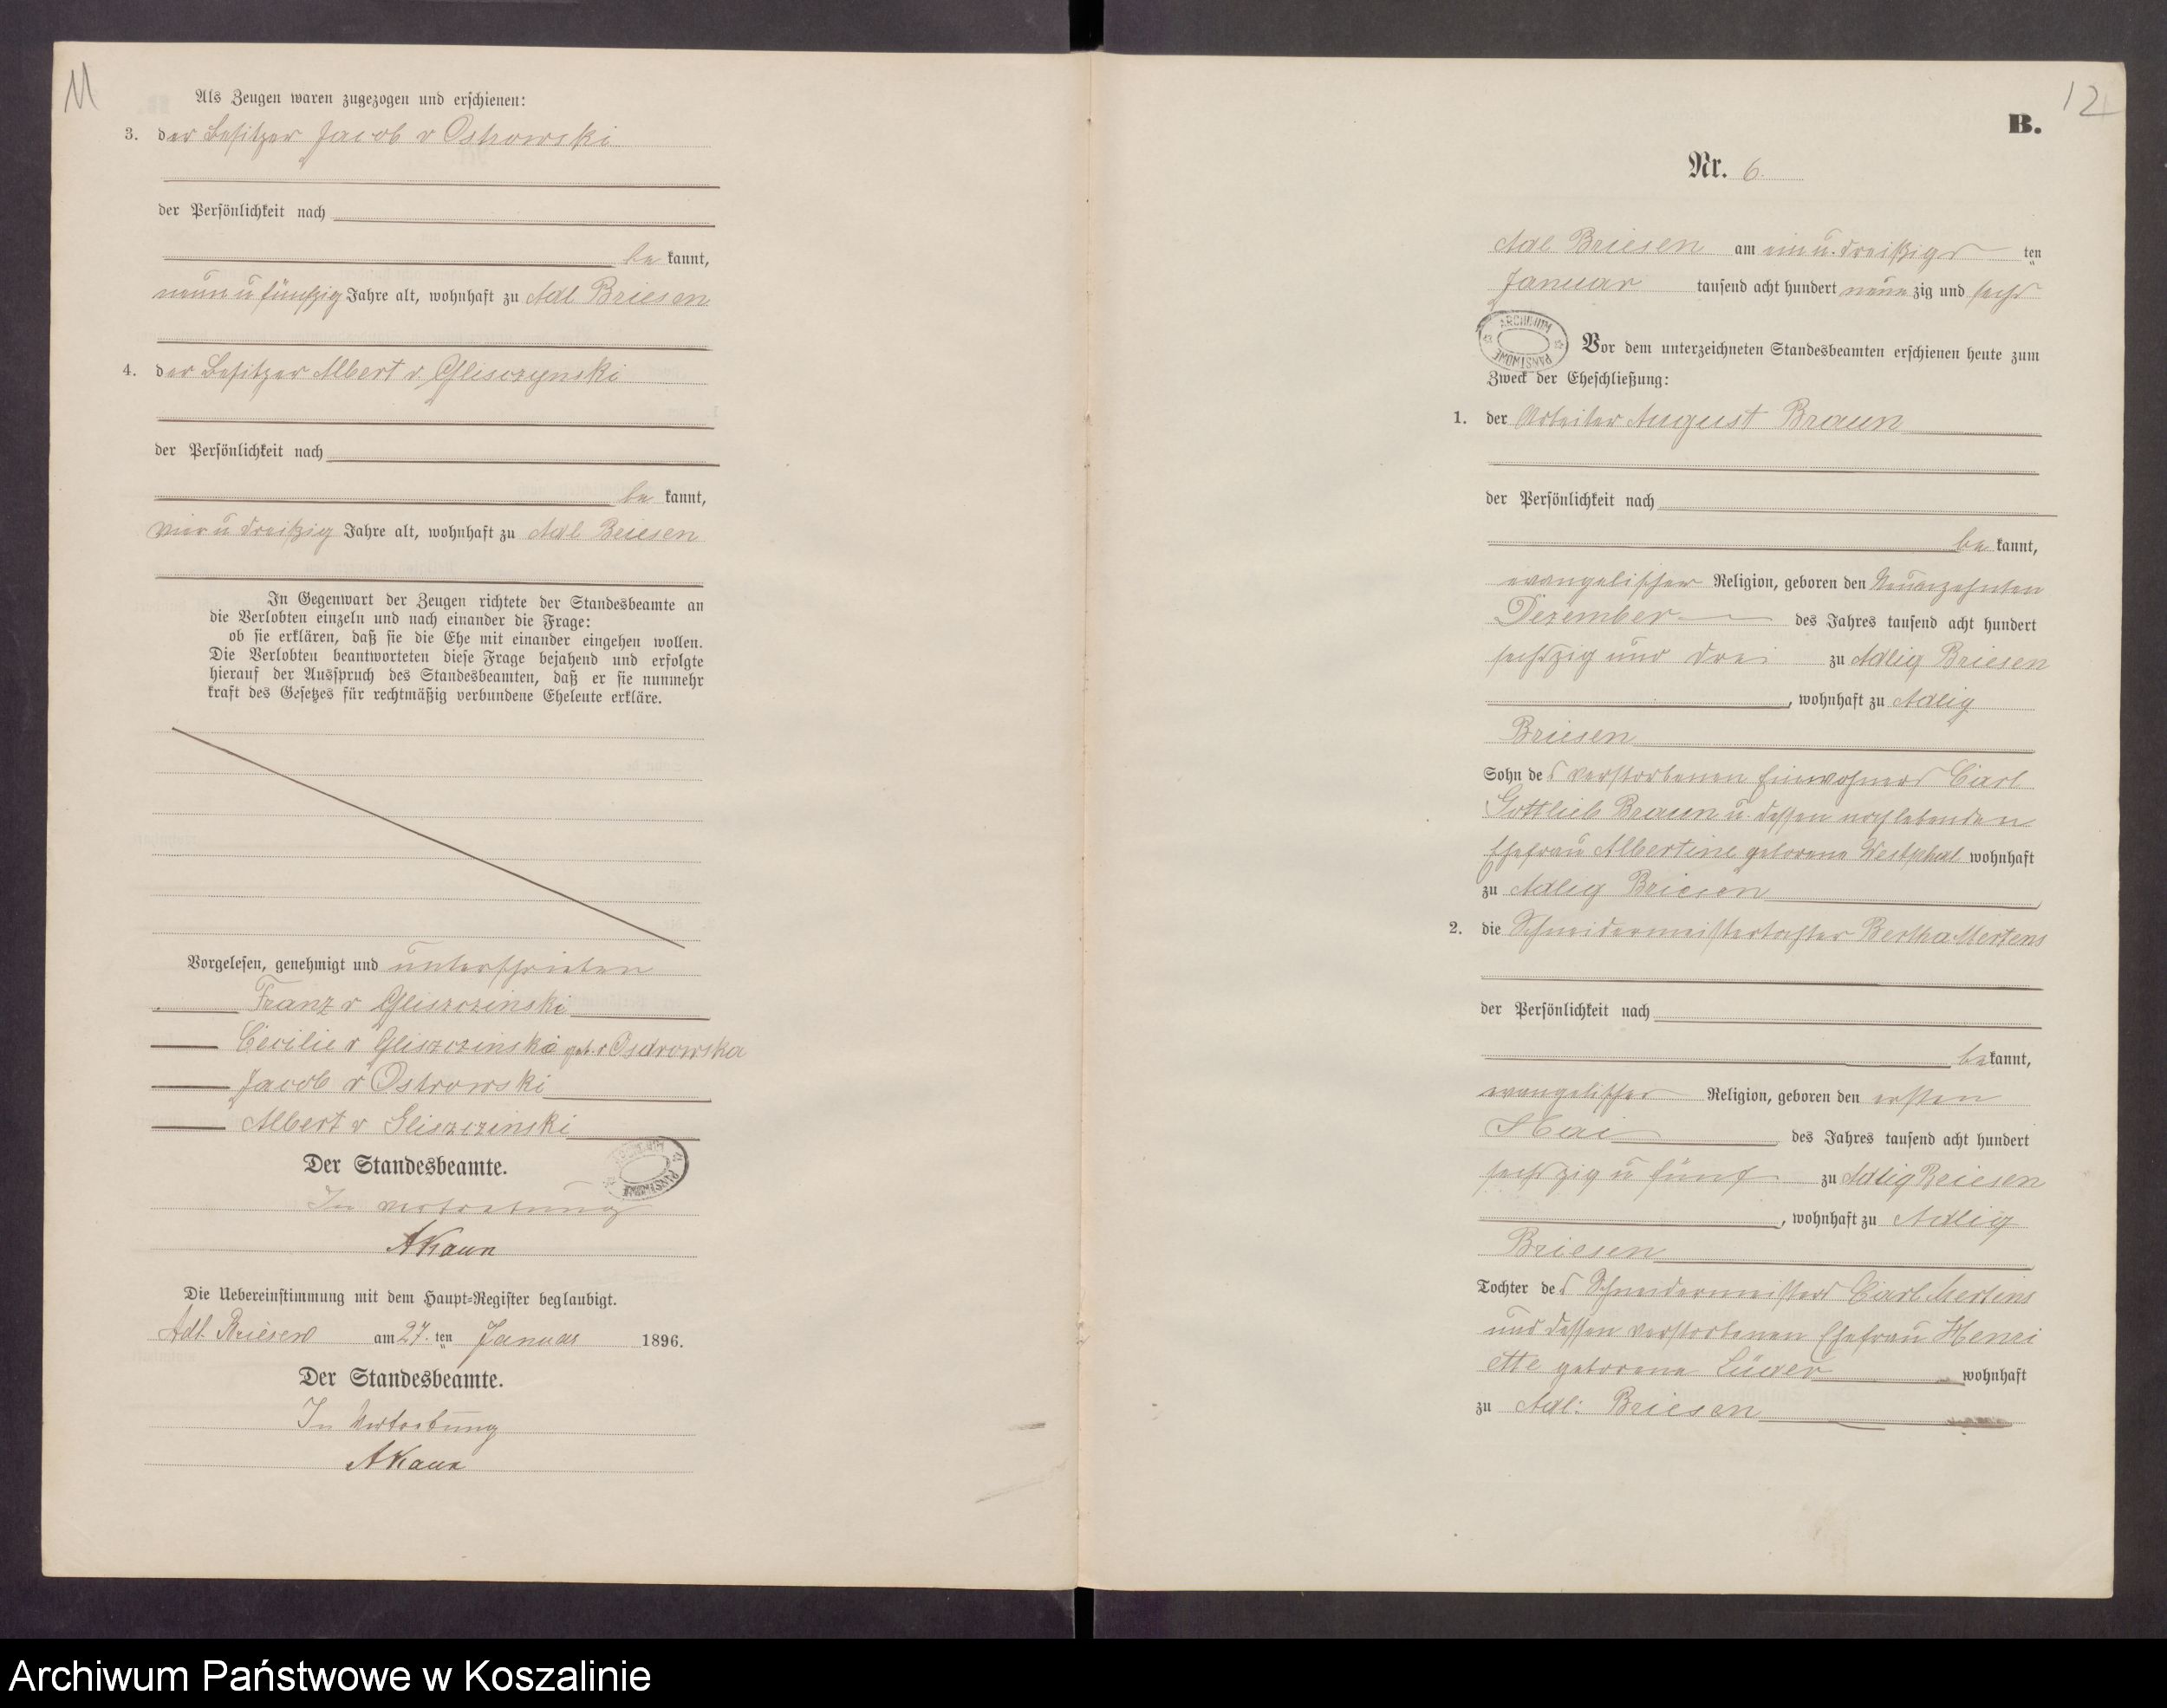 11
Als Zeugen waren zugezogen und erschienen:
3. der Besitzer Jacob v Ostrowski
der Persönlichkeit nach
be kannt,
neun u fünfzig Jahre alt, wohnhaft zu Adl Briesen
4. der Besitzer Albert v. Glisczynski
der Persönlichkeit nach
be kannt,
vier u dreißig Jahre alt, wohnhaft zu Adl Briesen
In Gegenwart der Zeugen richtete der Standesbeamte an
die Verlobten einzeln und nach einander die Frage:
ob sie erklären, daß sie die Ehe mit einander eingehen wollen.
Die Verlobten beantworteten diese Frage bejahend und erfolgte
hierauf der Ausspruch des Standesbeamten, daß er sie nunmehr
kraft des Gesetzes für rechtmäßig verbundene Eheleute erkläre.
Vorgelesen, genehmigt und unterschrieben
Franz v Gliszczinski
Cecilie v Gliszczinski geb. v Osdrowska
Jacob v Ostrowski
Albert v Gliszczinski
Der Standesbeamte.
ARCHIWUM PAŃSTWOWE
In Vertretung
AKaun
Die Uebereinstimmung mit dem Haupt=Register beglaubigt.
Adl. Briesen am 27. ten Januar 1896.
Der Standesbeamte.
In Vertretung
AKaun
12
B.
Nr. 6.
Adl Briesen am ein u. dreißigs ten
Januar tausend acht hundert neun zig und sechs
ARCHIWUM PAŃSTWOWE
Vor dem unterzeichneten Standesbeamten erschienen heute zum
Zweck der Eheschließung:
1. der Arbeiter August Braun
der Persönlichkeit nach
be kannt,
evangelischer Religion, geboren den Neunzehnten
Dezember des Jahres tausend acht hundert
sechszig und drei zu Adlig Briesen
, wohnhaft zu Adlig
Briesen
Sohn des verstorbenen Einwohners Carl
Gottlieb Braun u. dessen noch lebenden
Ehefrau Albertine geborene Westphal wohnhaft
zu Adlig Briesen
2. die Schneidermeistertochter Bertha Mertens
der Persönlichkeit nach
be kannt,
evangelischer Religion, geboren den ersten
Mai des Jahres tausend acht hundert
sechszig u fünf zu Adlig Briesen
, wohnhaft zu Adlig
Briesen
Tochter des Schneidermeisters Carl Mertens
und dessen verstorbenen Ehefrau Henri
ette geborene Lüder wohnhaft
zu Adl: Briesen
Archiwum Państwowe w Koszalinie